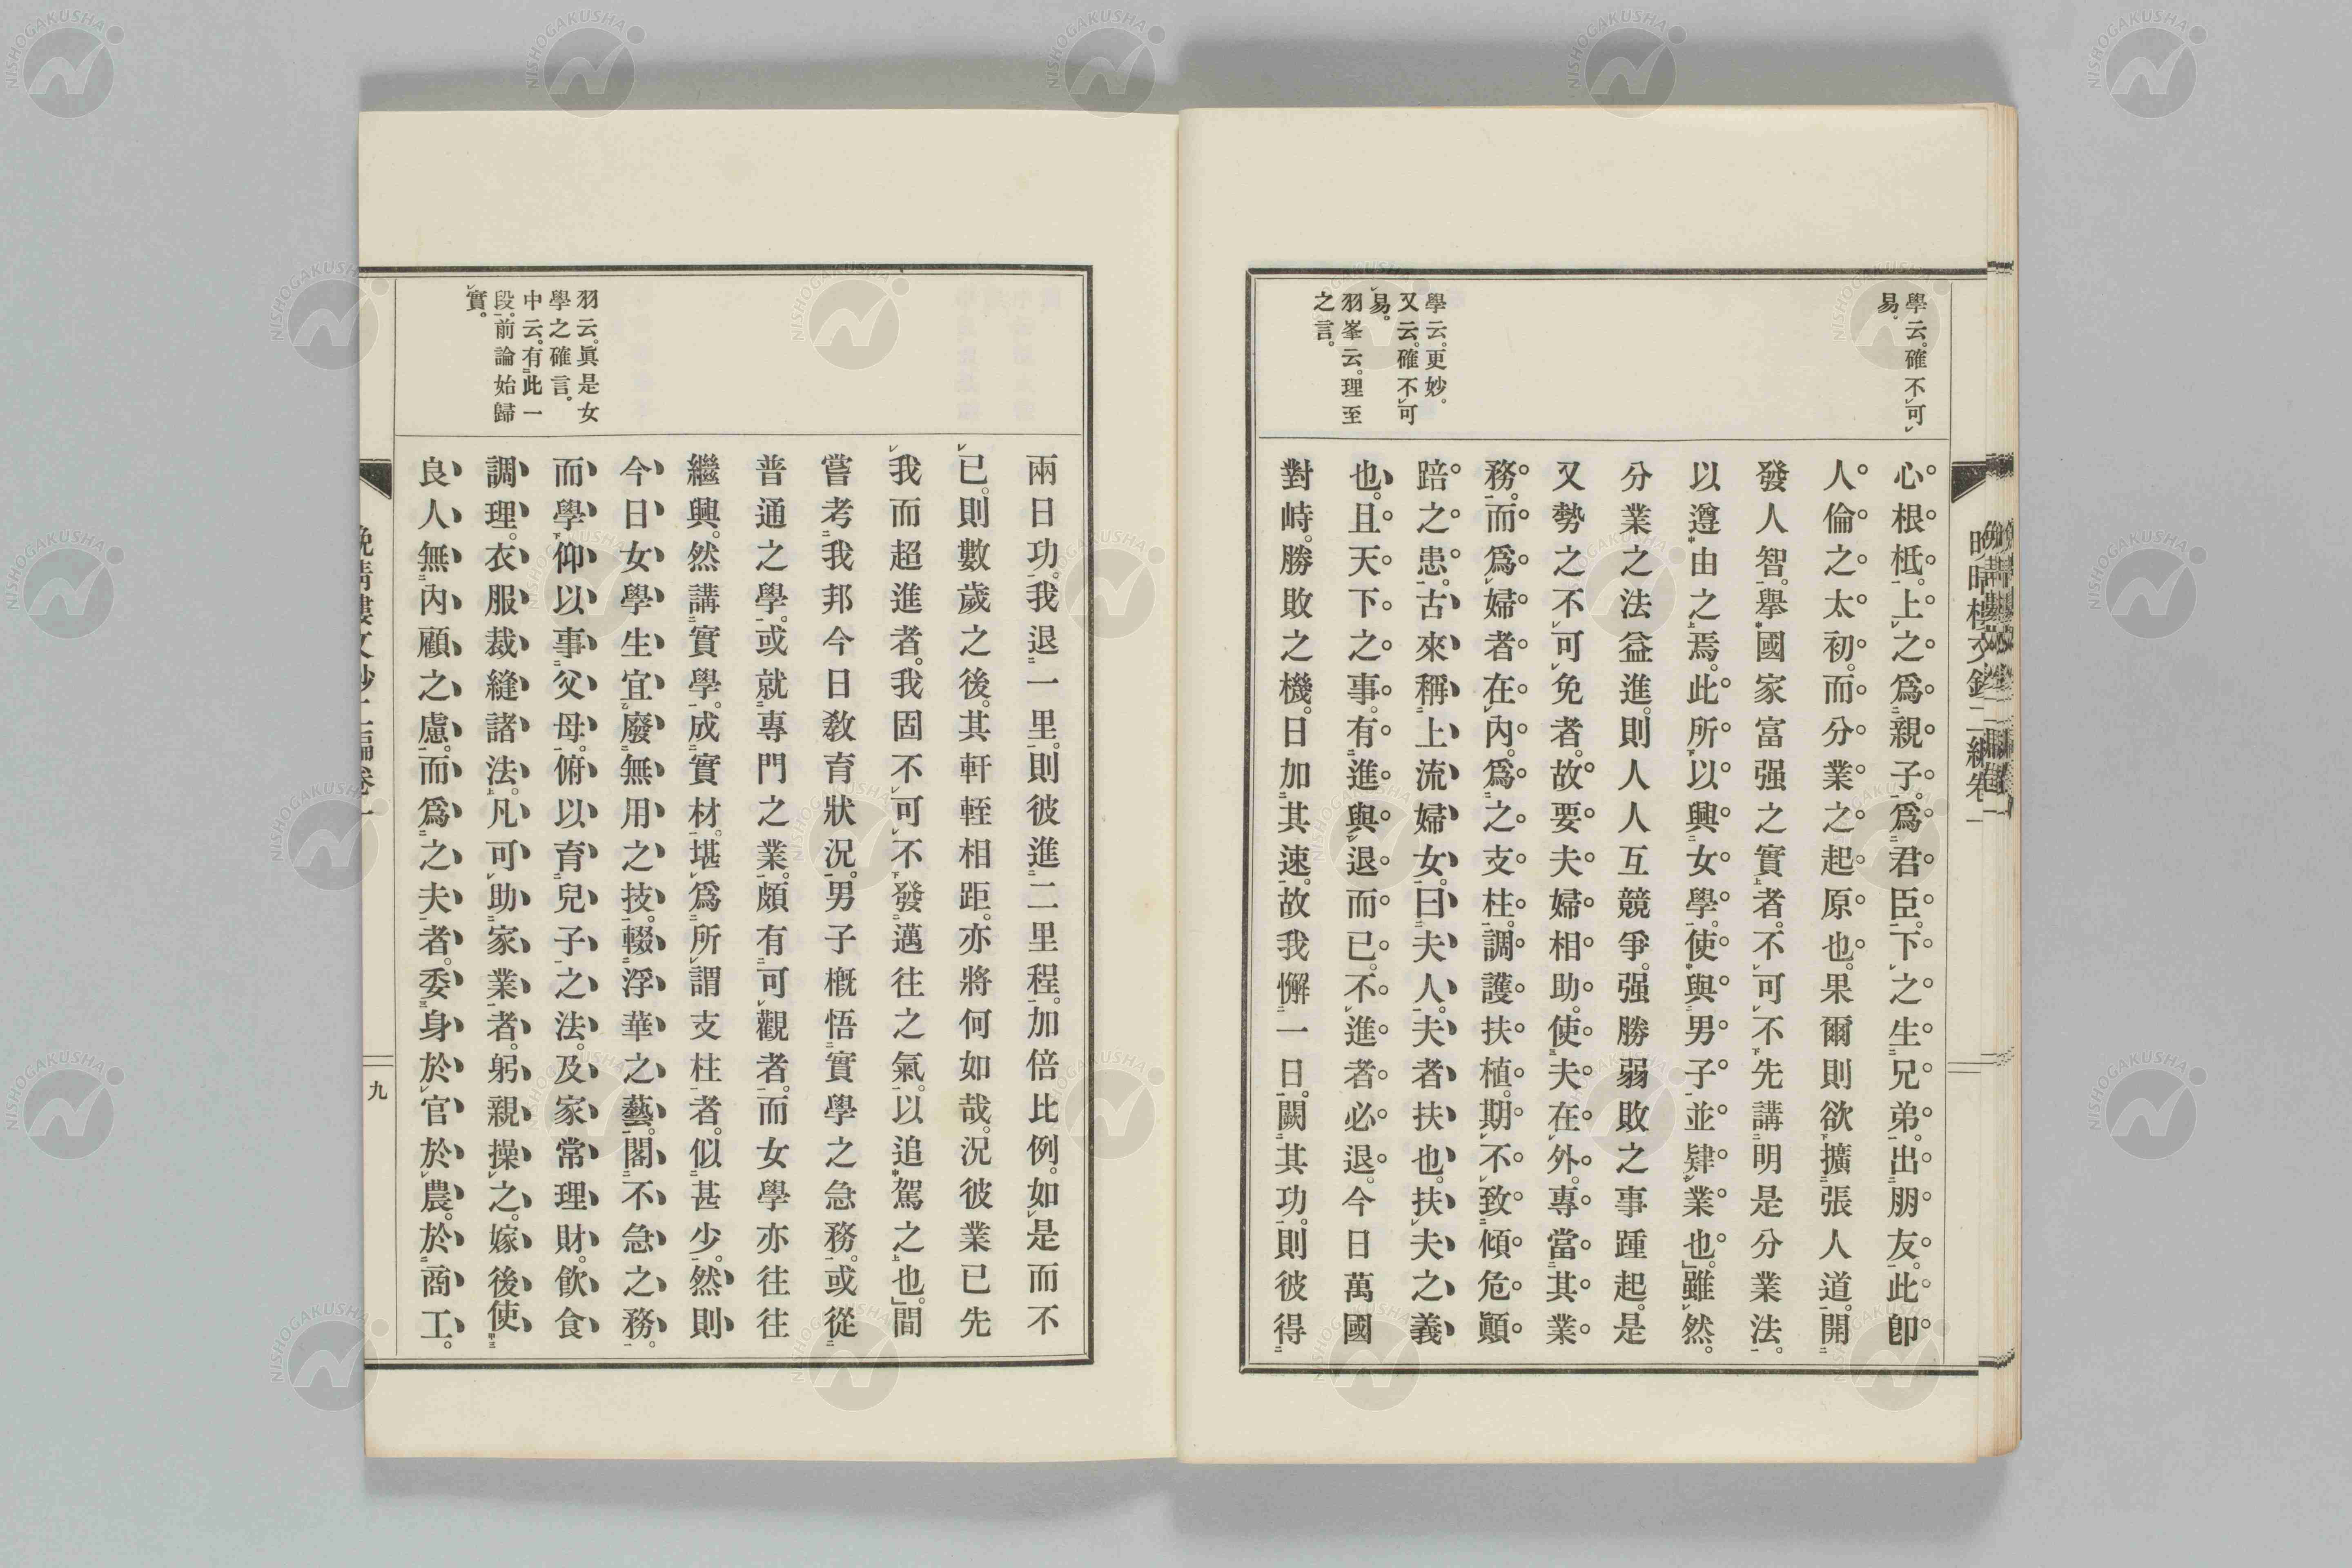 學云。確不可
易。
心根柢。上之爲親子。爲君臣。下之生兄弟。出朋友。此卽
人倫之太初。而分業之起原也。果爾則欲擴張人道。開
發人智。擧國家富强之實者。不可不先講明是分業法。
以遵由之焉。此所以興女學。使與男子並肄業也。」雖然。
分業之法益進。則人人互競爭。强勝弱敗之事踵起。是
又勢之不可免者。故要夫婦相助。使夫在外。專當其業
務。而爲婦者在內。爲之支柱。調護扶植。期不致傾危顚
踣之患。古來稱上流婦女。曰夫人。夫者扶也。扶夫之義
也。且天下之事。有進與退而已。不進者必退。今日萬國
對峙。勝敗之機。日加其速。故我懈一日。闕其功。則彼得
學云。更妙。
又云。確不可
易。
羽峯云。理至
之言。
兩日功。我退一里。則彼進二里程。加倍比例。如是而不
已。則數歲之後。其軒輊相距。亦將何如哉。況彼業已先
我而超進者。我固不可不發邁往之氣。以追駕之也。」間
嘗考我邦今日敎育狀況。男子槪悟實學之急務。或從
普通之學。或就專門之業。頗有可觀者。而女學亦往往
繼興。然講實學。成實材。堪爲所謂支柱者。似甚少。然則
今日女學生宜廢無用之技。輟浮華之藝。閣不急之務。
而學仰以事父母。俯以育兒子之法。及家常理財。飮食
調理。衣服裁縫諸法。凡可助家業者。躬親操之。嫁後使
良人無內顧之慮。而爲之夫者。委身於官於農。於商工。
羽云。眞是女
學之確言。
中云。有此一
段。前論始歸
實。
九
NISHOGAKUSHA